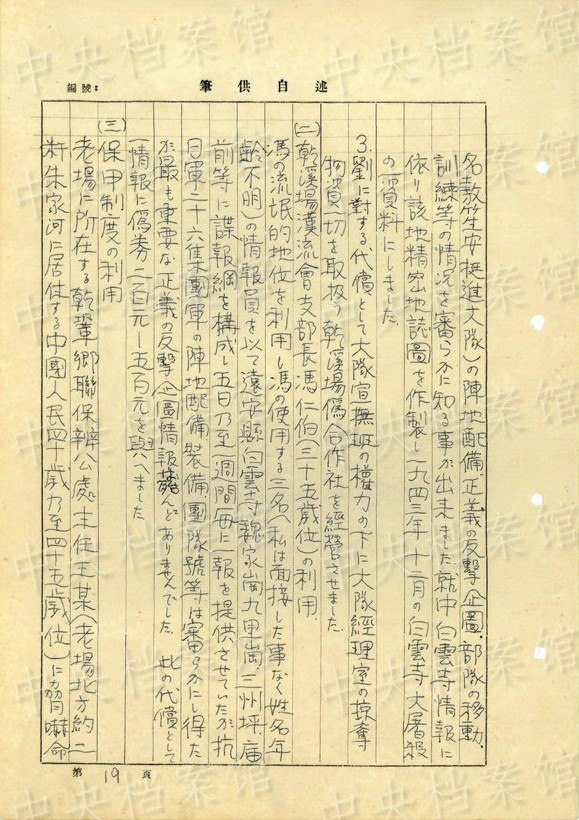 中央档案馆
編號:
筆供自述
名敖笙安挺進大隊)の陣地配備、正義の反撃企圖、部隊の移動、
訓練等の情況を審らかに知る事が出来ました。就中白雲寺情報に
依り該地精密地誌圖を作製し一九四三年十二月の白雲寺大屠殺
の一資料にしました。
3.劉に対する代償として大隊宣撫班の權力の下に大隊經理室の掠奪
物資一切を取扱う乾溪場偽合作社を經営させました。
(二)乾溪場漢流會支部長馮仁伯(三十五歳位)の利用
馮の流氓的地位を利用し馮の使用する三名(私は面接した事なく姓名年
齢不明)の情報員を以て遠安縣白雲寺魏家崗九里崗三州坪廟
前等に諜報網を構成し五日乃至一週間毎に一報を提供させていたが抗
日軍二十六集團軍の陣地配備、裝備、團隊號等は審らかにし得た
が最も重要な正義の反撃企圖情報は殆んどありませんでした。此の代償として
一情報に偽券二百元—五百元を與へました。
(三)保甲制度の利用
老場に所在する乾鞏郷聯保辦公處主任王某(老場北方約二
粁朱家河に居住する中國人民四十歳乃至四十五歳位)に脅嚇命
第19頁